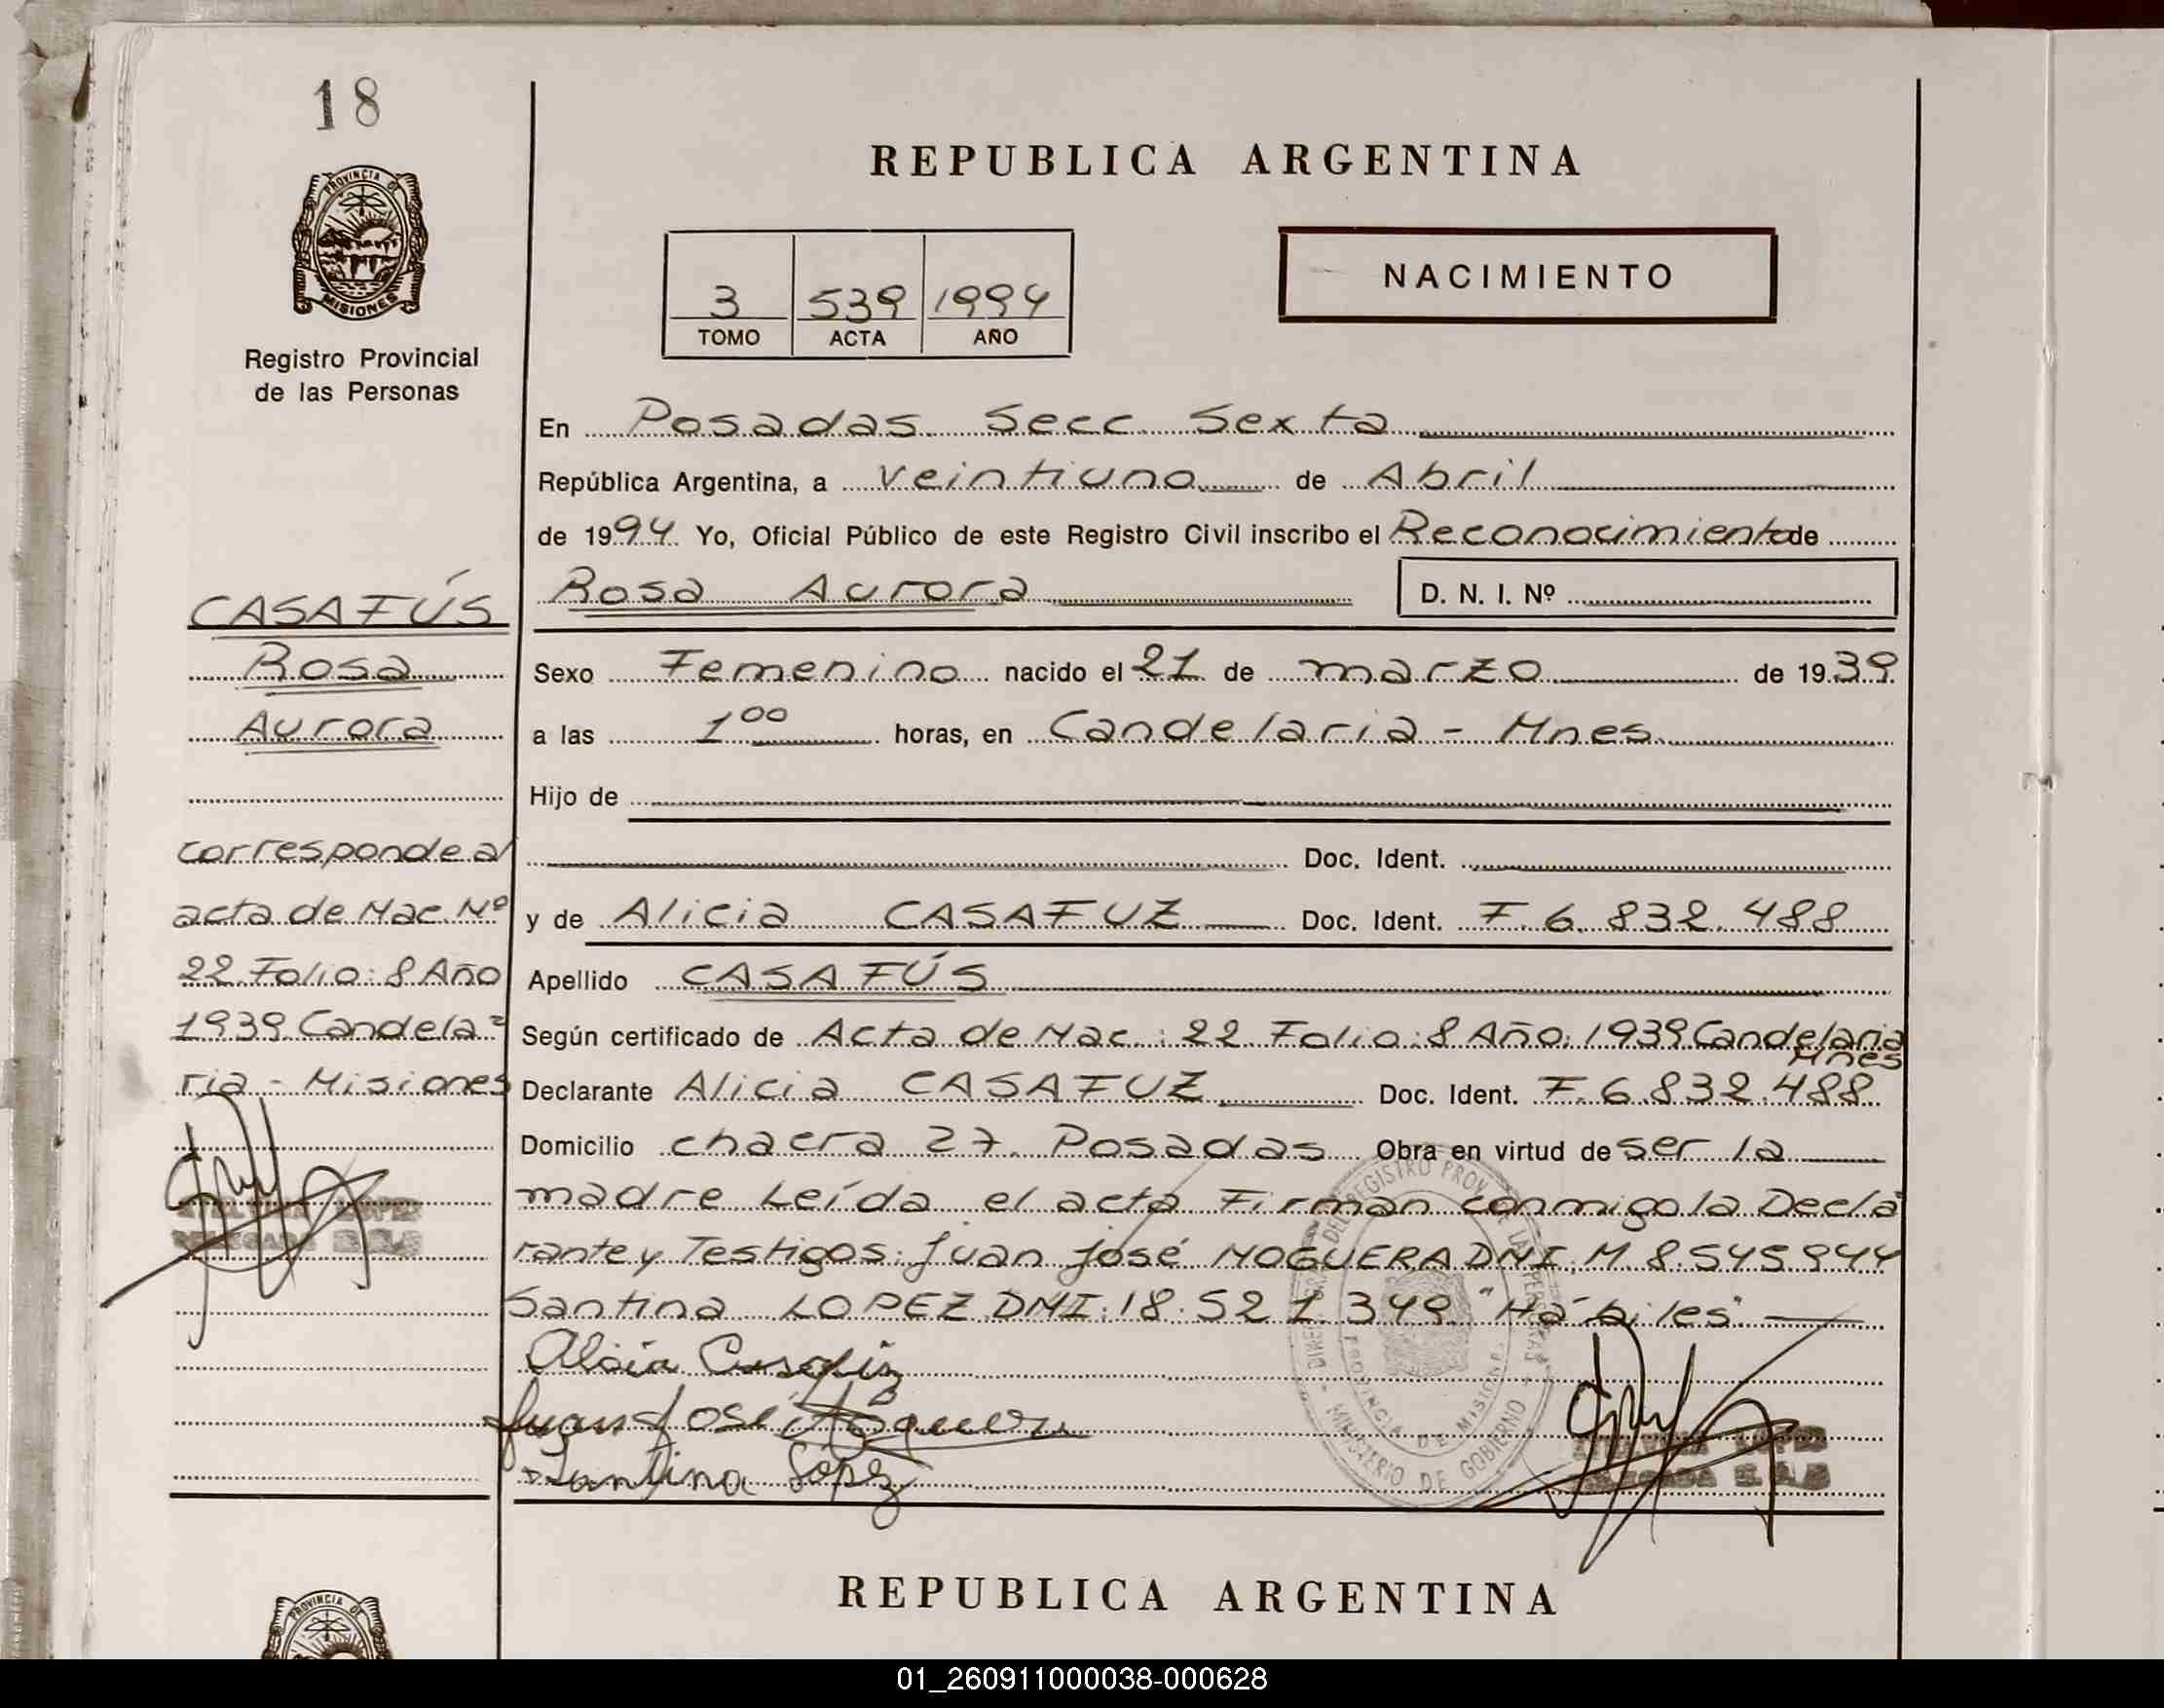 18
REPUBLICA ARGENTINA
PROVINCIA DE
MISIONES
Registro Provincial
de las Personas
3 539 1994
TOMO ACTA AÑO
NACIMIENTO
En Posadas Secc Sexta
República Argentina, a veintiuno de Abril
de 1994 Yo, Oficial Público de este Registro Civil inscribo el Reconocimiento de
Rosa Aurora D. N. I. Nº
CASAFÚS
Rosa
Aurora
corresponde al
acta de Nac. Nº
22 Folio: 8 Año
1939 Candela=
ria - Misiones
Sexo Femenino nacido el 21 de marzo de 1939
a las 1 00 horas, en Candelaria - Mnes.
Hijo de
Doc. Ident.
y de Alicia CASAFUZ Doc. Ident. F. 6.832.488
Apellido CASAFÚS
Según certificado de Acta de Nac.: 22 Folio: 8 Año: 1939 Candelaria
Mnes
Declarante Alicia CASAFUZ Doc. Ident. F. 6.832.488
Domicilio chacra 27. Posadas Obra en virtud de ser la
madre Leída el acta Firman conmigo la Decla
rante y Testigos: Juan José NOGUERA DNI. M. 8.545.944
Santina LOPEZ DNI: 18.521.349 "Hábiles"
Juan José Noguera
Santina López
LOPEZ
DIREC. GRAL. DEL REGISTRO PROV. DE LAS PERSONAS
PROVINCIA DE MISIONES
MINISTERIO DE GOBIERNO
LOPEZ
REPUBLICA ARGENTINA
PROVINCIA DE
01_260911000038-000628